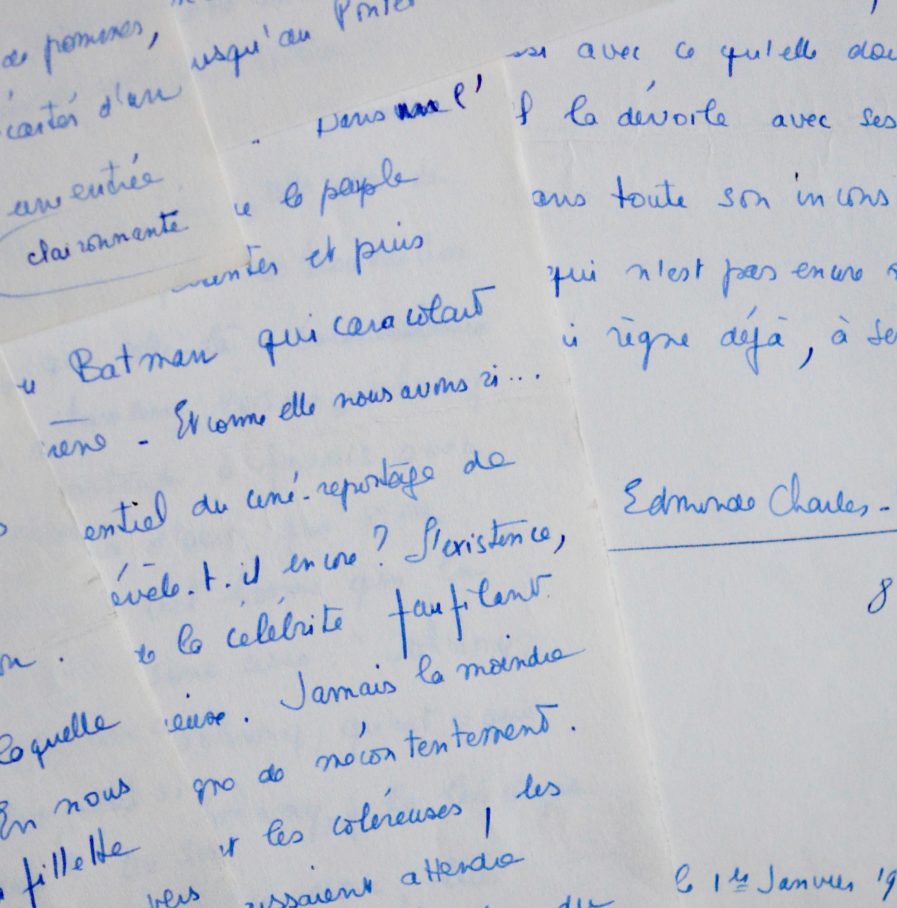 de pommes,
écartés d'un
une entrée
claironnante
jusqu'au
. Dans l'
le peuple
et puis
Batman qui caracolait
- Et comme elle nous avons ri...
entiel du ciné-reportage de
évèle.t.il encore ? L'existence,
la célébrité faufilant
euse. Jamais la moindre
gne de mécontentement.
et les coléreuses, les
issaient attendre
laquelle
En nous
fillette
vers
avec ce qu'elle
la dévoile avec ses
ans toute son incons
qui n'est pas encore
règne déjà, à se
Edmonde Charles-
8
le 1er Janvier 19